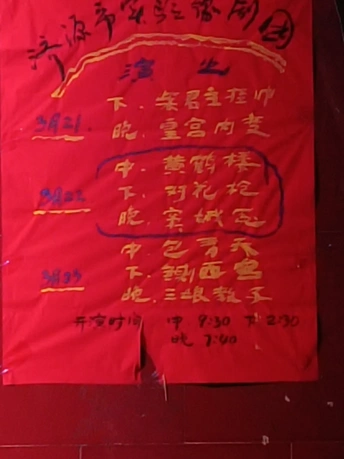 济源市实验豫剧团
演出
下.柴君主挂帅
3月21.
晚.皇宫内变
中.黄鹤楼
3月22
下.对花枪
晚.窦娥冤
中包青天
3月23
下.铡西宫
晚.三娘教子
开演时间 中9:30 下2:30
晚7:40